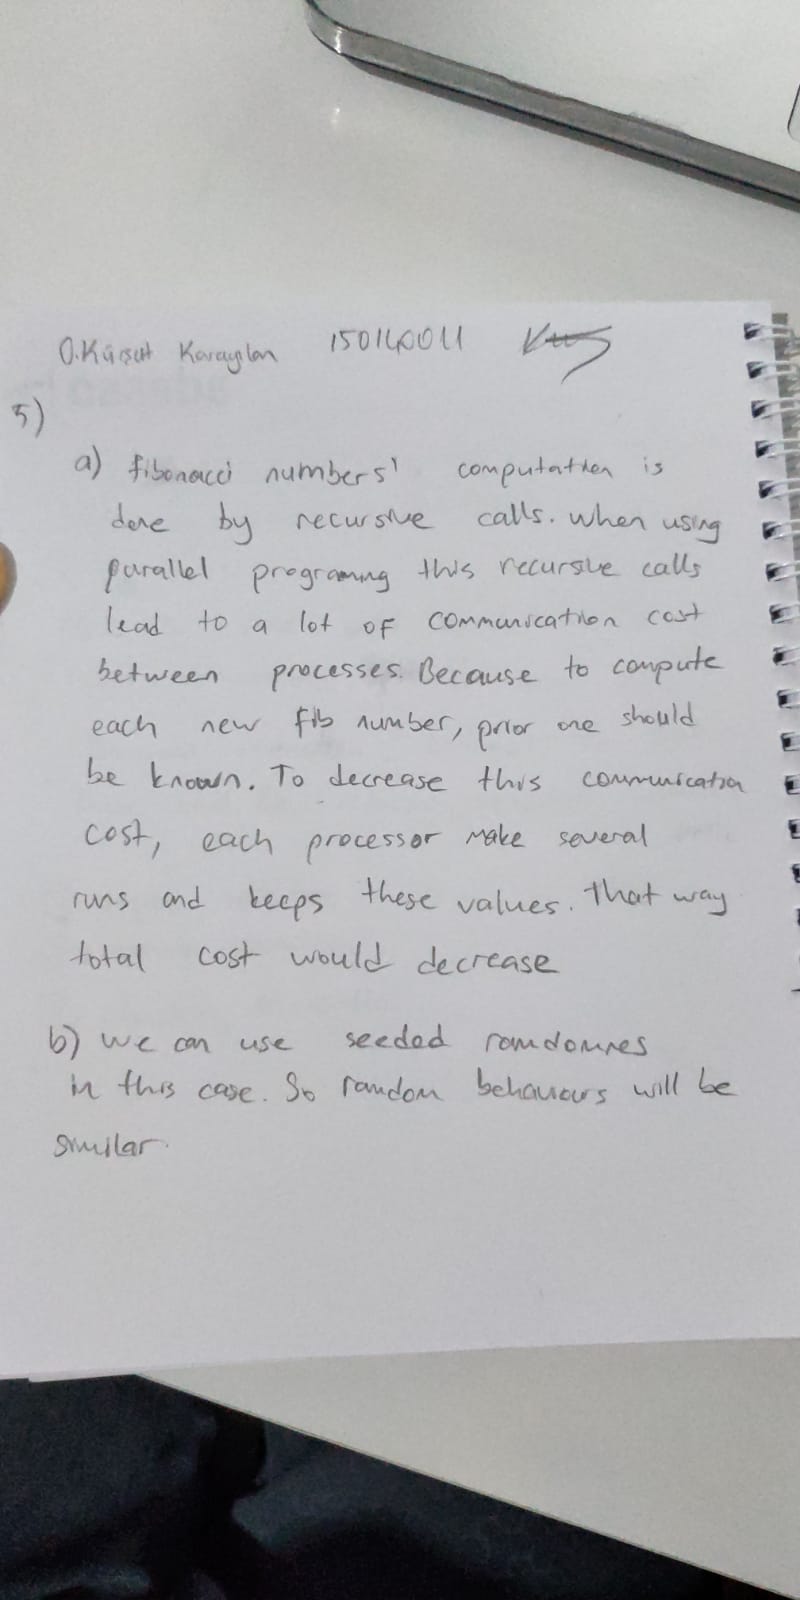 O.Kürşat Karayılan 150140011
5)
a) fibonacci numbers' computation is
done by recursive calls. When using
parallel programing this recursive calls
lead to a lot of communication cost
between processes. Because to compute
each new fib number, prior one should
be known. To decrease this communication
cost, each processor make several
runs and keeps these values. That way
total cost would decrease
b) We can use seeded romdomnes
in this case. So random behaviours will be
similar.